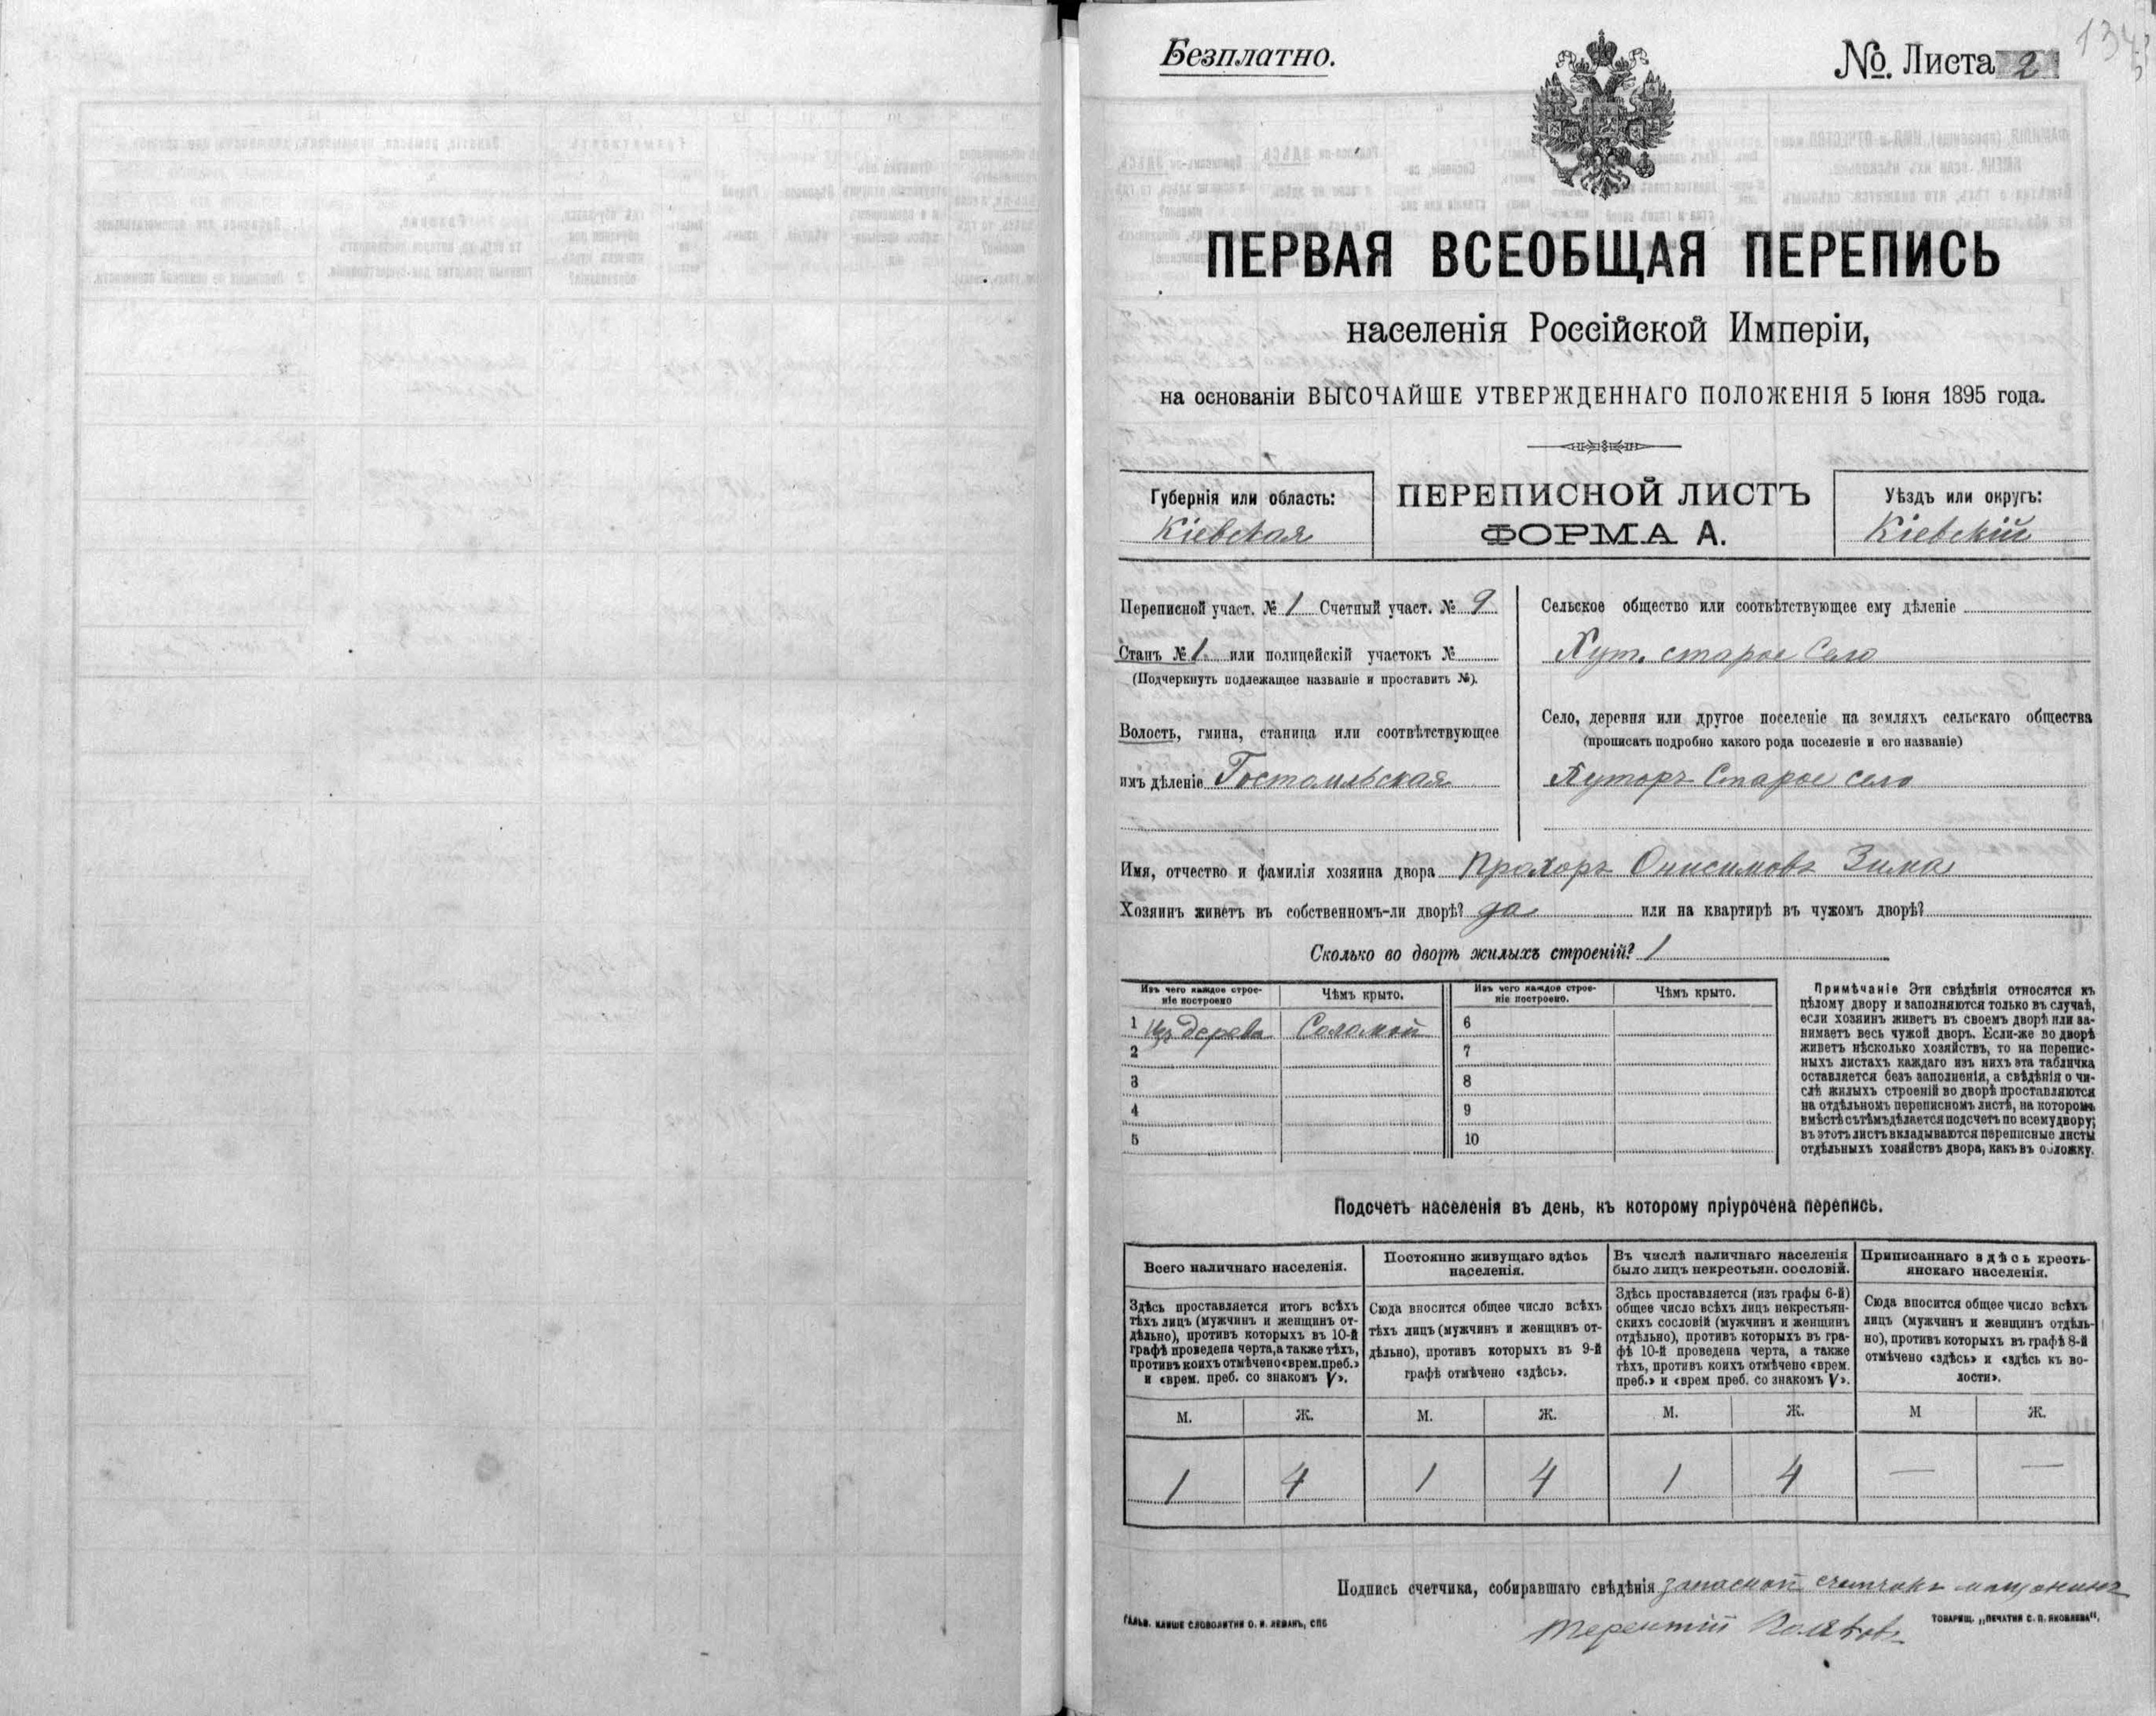 Безплатно.
№. Листа 2
134
ПЕРВАЯ ВСЕОБЩАЯ ПЕРЕПИСЬ
населенія Россійской Имперіи,
на основаніи ВЫСОЧАЙШЕ УТВЕРЖДЕННАГО ПОЛОЖЕНІЯ 5 Іюня 1895 года.
Губернія или область:
Кіевская
ПЕРЕПИСНОЙ ЛИСТЪ
ФОРМА А.
Уѣздъ или округъ:
Кіевскій
Переписной участ. № 1 Счетный участ. № 9
Станъ № 1 или полицейскій участокъ №
(Подчеркнуть подлежащее названіе и проставить №).
Волость, гмина, станица или соотвѣтствующее
имъ дѣленіе Гостомльская
Сельское общество или соотвѣтствующее ему дѣленіе
Хут. старое Село
Село, деревня или другое поселеніе на земляхъ сельскаго общества
(прописать подробно какого рода поселеніе и его названіе)
Хуторъ Старое село
Имя, отчество и фамилія хозяина двора Прохоръ Онисимовъ Зима
Хозяинъ живетъ въ собственномъ-ли дворѣ? да или на квартирѣ въ чужомъ дворѣ?
Сколько во дворѣ жилыхъ строеній? 1
Изъ чего каждое строе-
ніе построено
Чѣмъ крыто.
Изъ чего каждое строе-
ніе построено.
Чѣмъ крыто.
1 Изъ дерева Соломой 6
2 7
3 8
4 9
5 10
Примѣчаніе Эти свѣдѣнія относятся къ
цѣлому двору и заполняются только въ случаѣ,
если хозяинъ живетъ въ своемъ дворѣ или за-
нимаетъ весь чужой дворъ. Если-же во дворѣ
живетъ нѣсколько хозяйствъ, то на перепис-
ныхъ листахъ каждаго изъ нихъ эта табличка
оставляется безъ заполненія, а свѣдѣнія о чи-
слѣ жилыхъ строеній во дворѣ проставляются
на отдѣльномъ переписномъ листѣ, на которомъ
вмѣстѣ съ тѣмъ дѣлается подсчетъ по всему двору;
въ этотъ листъ вкладываются переписные листы
отдѣльныхъ хозяйствъ двора, какъ въ обложку.
Подсчетъ населенія въ день, къ которому пріурочена перепись.
Всего наличнаго населенія.
Постоянно живущаго здѣсь
населенія.
Въ числѣ наличнаго населенія
было лицъ некрестьян. сословій.
Приписаннаго здѣсь кресть-
янскаго населенія.
Здѣсь проставляется итогъ всѣхъ
тѣхъ лицъ (мужчинъ и женщинъ от-
дѣльно), противъ которыхъ въ 10-й
графѣ проведена черта, а также тѣхъ,
противъ коихъ отмѣчено «врем. преб.»
и «врем. преб. со знакомъ V».
Сюда вносится общее число всѣхъ
тѣхъ лицъ (мужчинъ и женщинъ от-
дѣльно), противъ которыхъ въ 9-й
графѣ отмѣчено «здѣсь».
Здѣсь проставляется (изъ графы 6-й)
общее число всѣхъ лицъ некрестьян-
скихъ сословій (мужчинъ и женщинъ
отдѣльно), противъ которыхъ въ гра-
фѣ 10-й проведена черта, а также
тѣхъ, противъ коихъ отмѣчено «врем.
преб.» и «врем преб. со знакомъ V».
Сюда вносится общее число всѣхъ
лицъ (мужчинъ и женщинъ отдѣль-
но), противъ которыхъ въ графѣ 8-й
отмѣчено «здѣсь» и «здѣсь къ во-
лости».
М. Ж. М. Ж. М. Ж. М Ж.
1 4 1 4 1 4 — —
Подпись счетчика, собиравшаго свѣдѣнія запасной счетчикъ мещанинъ
Терентій Поляковъ
ГАЛЬВ. КЛИШЕ СЛОВОЛИТНИ О. И. ЛЕМАНЪ, СПБ
ТОВАРИЩ. „ПЕЧАТНЯ С. П. ЯКОВЛЕВА“.